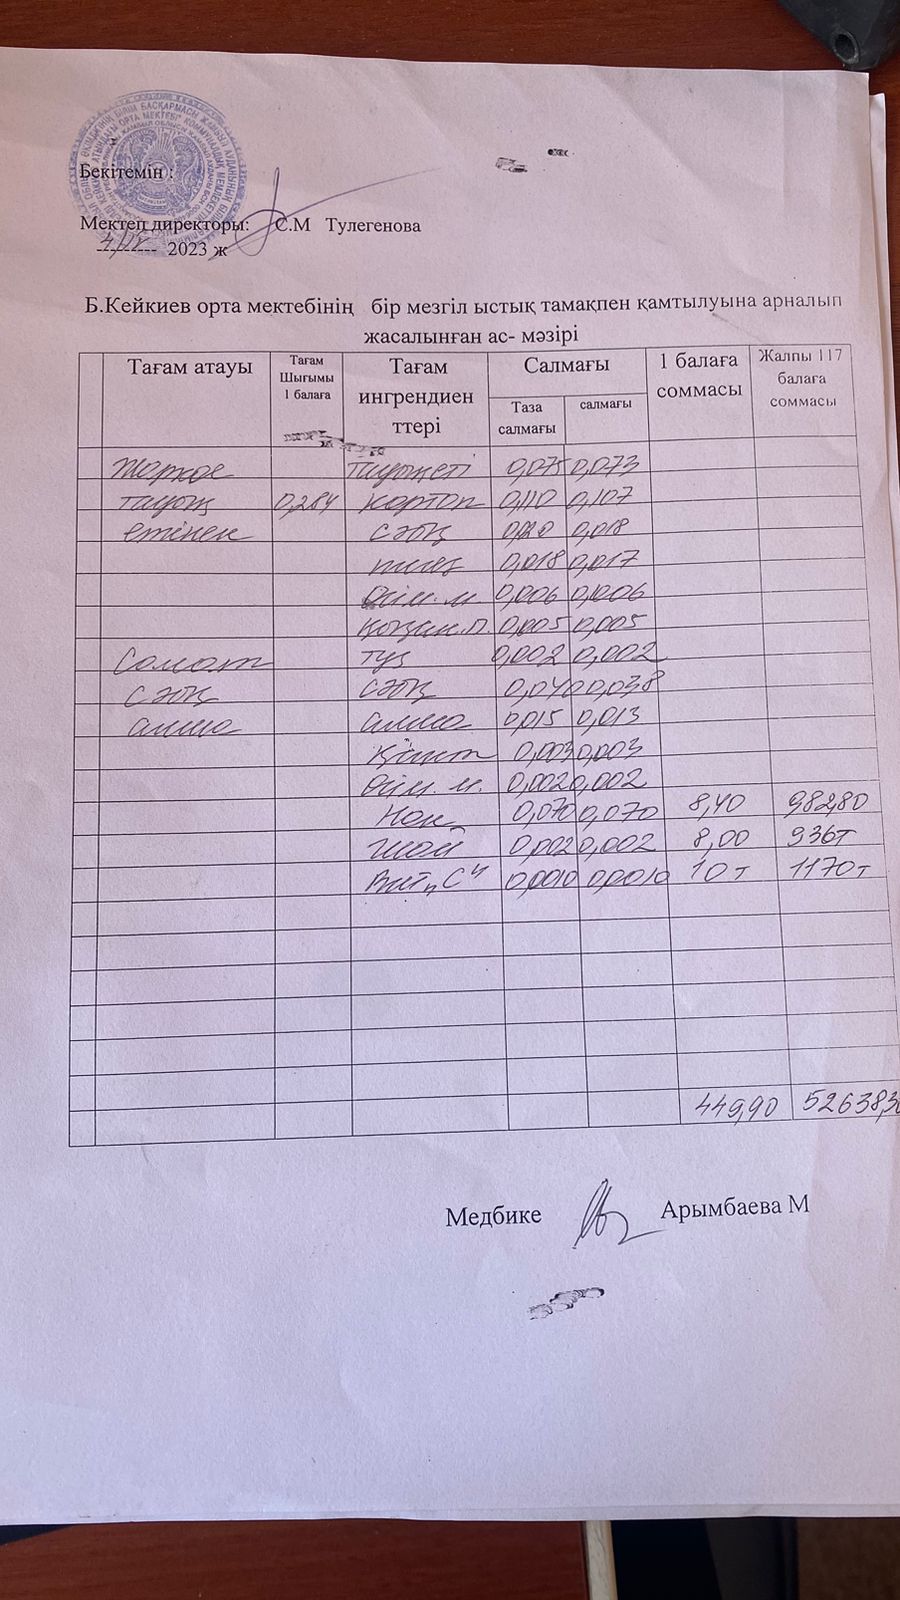 Бекітемін :
Мектеп директоры: С.М Тулегенова
2023 ж
Б.Кейкиев орта мектебінің бір мезгіл ыстық тамақпен қамтылуына арналып
жасалынған ас- мәзірі
Тағам атауы Тағам Шығымы 1 балаға Тағам ингрендиен ттері Салмағы 1 балаға соммасы Жалпы 117 балаға соммасы
Таза салмағы салмағы
Жаркое Тауықеті 0,075 0,073
тауық 0,284 картоп 0,110 0,107
етінен сәбіз 0,020 0,018
пияз 0,018 0,017
Өсім.м. 0,006 0,006
қызан.п. 0,005 0,005
Салат тұз 0,002 0,002
сәбіз сәбіз 0,040 0,038
алма алма 0,015 0,013
Қант 0,003 0,003
Өсім.м. 0,002 0,002
Нан 0,070 0,070 8,40 982,80
Шай 0,002 0,002 8,00 936т
Вит "С" 0,0010 0,0010 10 т 1170 т
449,90 52638,30
Медбике Арымбаева М